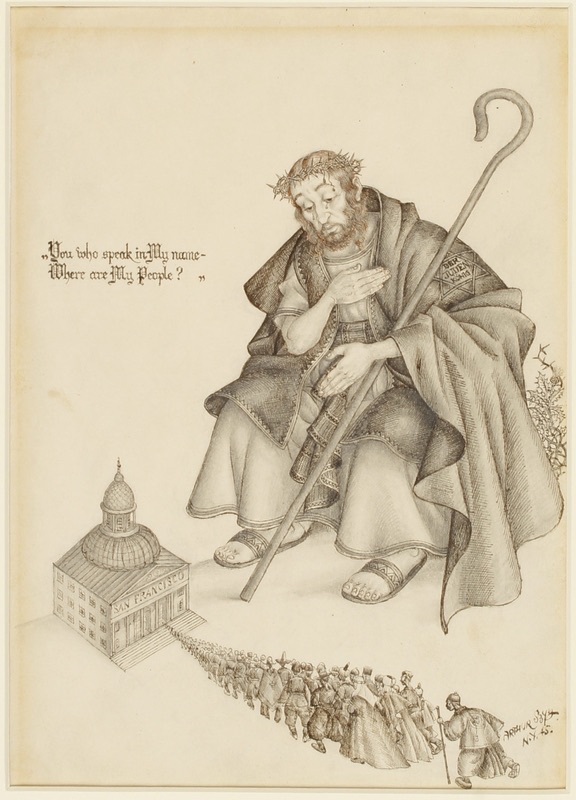 „You who speak in My name-
Where are My People?"
DER
JUDEN
SAN FRANCISCO
ARTHUR SZYK
N.Y. 45.